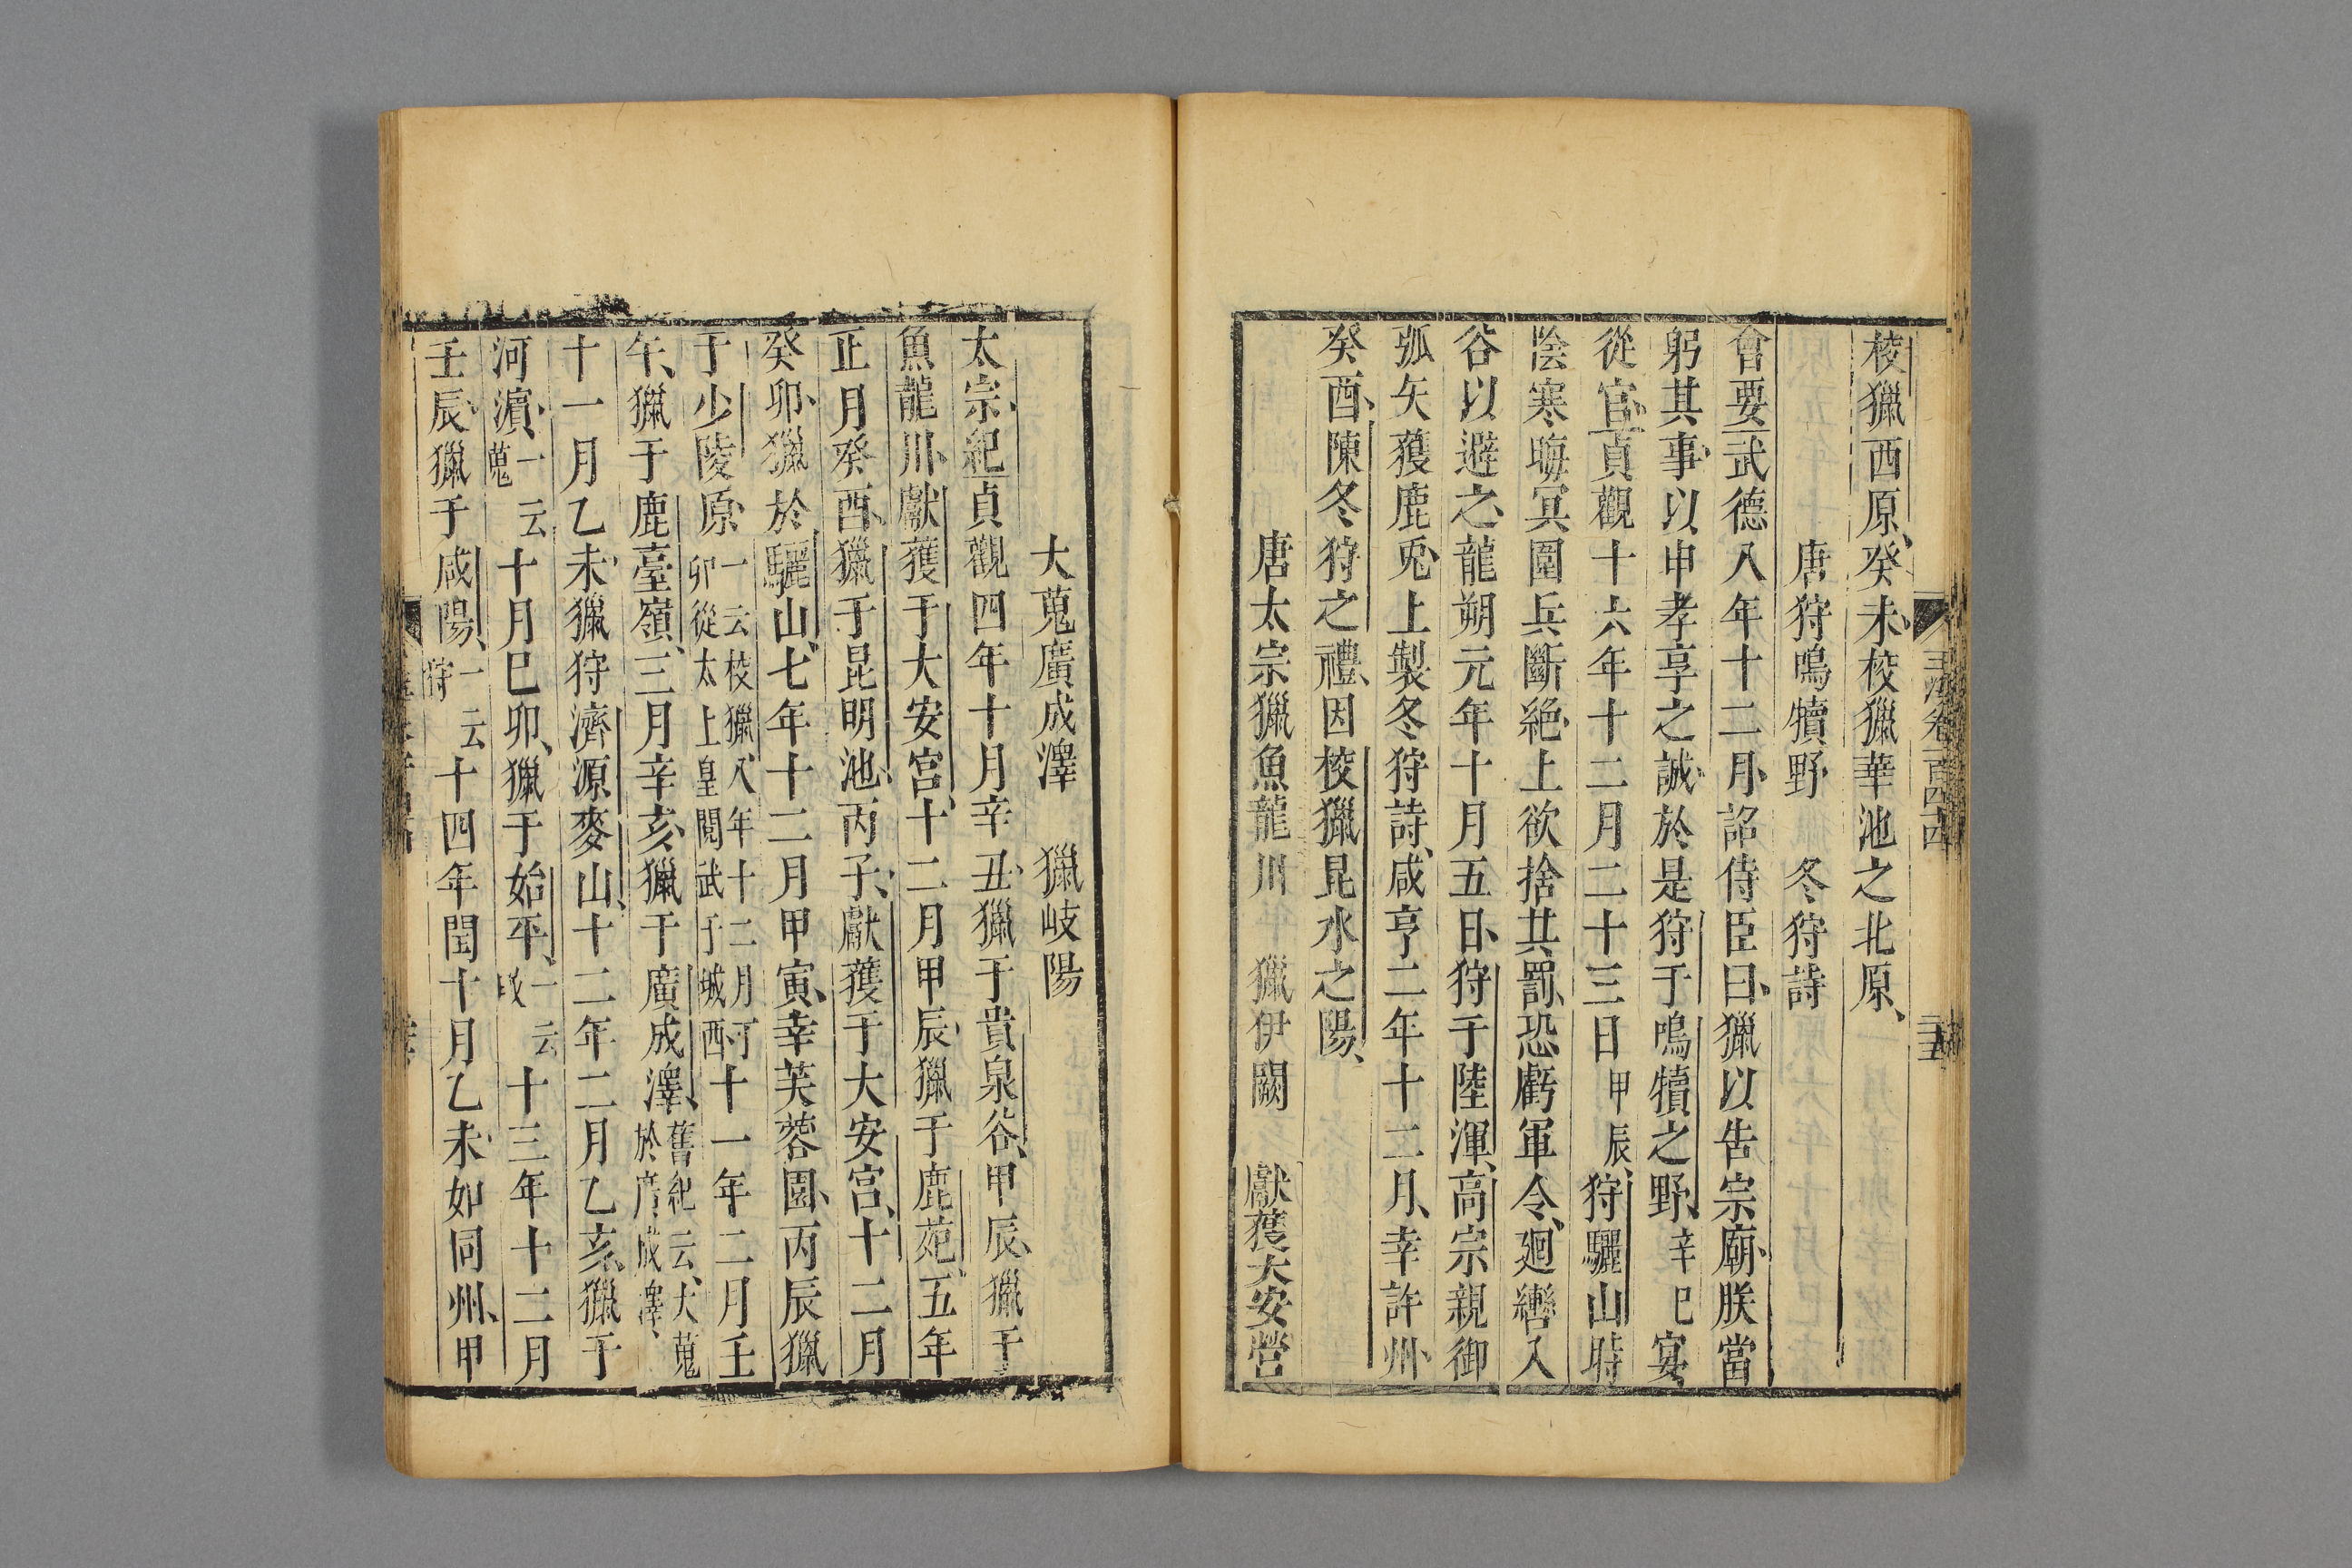 校獵西原癸未校獵華池之北原
唐狩鳴犢野 冬狩詩
會要武德八年十二月詔侍臣曰獵以告宗廟朕當
躬其事以申孝享之誠於是狩于鳴犢之野辛巳宴
從官貞觀十六年十二月二十三日甲辰狩驪山時
陰寒晦冥圍兵斷絶上欲捨其罰恐虧軍令廻轡入
谷以避之龍朔元年十月五日狩于陸渾高宗親御
弧矢獲鹿兎上製冬狩詩咸亨二年十二月幸許州
癸酉陳冬狩之禮因校獵昆水之陽
唐太宗獵魚龍川 獵伊闕 獻獲大安營
大蒐廣成澤 獵岐陽
太宗紀貞觀四年十月辛丑獵于貴泉谷甲辰獵于
魚龍川獻獲于大安宮十二月甲辰獵于鹿苑五年
正月癸酉獵于昆明池丙子獻獲于大安宮十二月
癸卯獵於驪山七年十二月甲寅幸芙蓉園丙辰獵
于少陵原一云校獵八年十二月丁卯從太上皇閱武于城西十一年二月壬
午獵于鹿臺嶺三月辛亥獵于廣成澤舊紀云大蒐於廣成澤
十一月乙未獵狩濟源麥山十二年二月乙亥獵于
河濵一云蒐十月巳卯獵于始平一云畋十三年十二月
壬辰獵于咸陽一云狩十四年閏十月乙未如同州甲